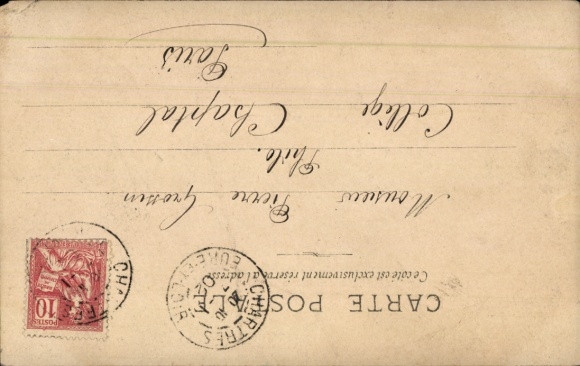 CARTE POSTALE
Ce côté est exclusivement réservé à l'adresse
CHARTRES
EURE-ET-LOIR
CHARTRES
POSTES
10
Monsieur Pierre Grossin
Philo.
Collège Chaptal
Paris